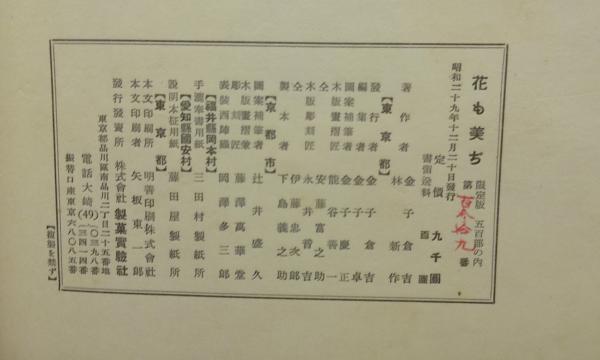 花も美ち
限定版 五百部の内
第 百参拾九 番
昭和二十九年十二月二十日發行
定價 九千圓
書留送料 百圓
著作者 金子倉吉
林新作
【東京都】
發行者 金子倉吉
編集者 金子卓
圖案補筆者 金子慶正
木版畫摺師 熊谷善一
仝 安藤富之助
木版彫刻匠 永井晋吉
仝 伊藤忠次郎
製本者 下島義之助
【京都市】
圖案補筆者 辻井盛久
木版畫摺彙
彫刻匠 藤澤萬華堂
表装西陣織 岡澤多三郎
【福井縣岡本村】
手漉奉書用紙 三田村製紙所
【愛知縣國安村】
説明本征用紙 藤田屋製紙所
【東京都】
本文印刷所 明善印刷株式會社
本文印刷者 矢板東一郎
發行發賣所 株式會社 製菓實驗社
東京都品川區南品川二丁目二十五番地
電話大崎(49)〇三九八番
三四一四番
振替口座東京六八〇八五番
【複製を禁ず】